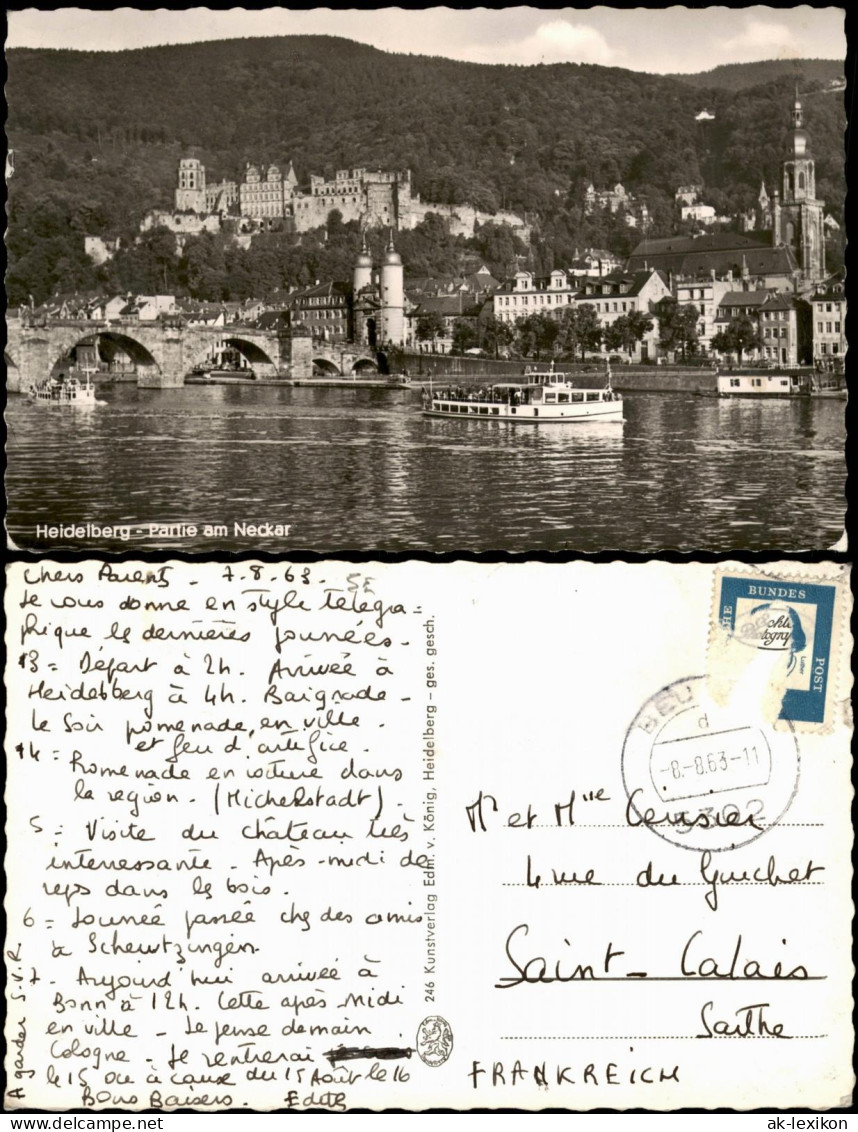 Heidelberg - Partie am Neckar
Chers Parents - 7.8.63.
Je vous donne en style télégra=
phique les dernières journées.
13 = Départ à 2h. Arrivée à
Heidelberg à 4h. Baignade -
le soir promenade en ville.
et feu d'artifice.
14 = Promenade en voiture dans
la région - (Michelstadt).
5 = Visite du château très
interessante - Après-midi de
repos dans les bois.
6 = Journée passée chez des amis
à Schewtzingen
7 - Aujourd'hui arrivée à
Bonn à 12h. Cette après-midi
en ville - Je pense demain
Cologne - Je rentrerai
le 15 ou à cause du 15 Août le 16
Bons Baisers. Edith
A garder S.V.P.
246 Kunstverlag Edm. v. König, Heidelberg - ges. gesch.
BUNDES
POST
Luther
d
-8.-8.63-11
Mr et Mme Censier
4 rue du Guichet
Saint-Calais
Sarthe
FRANKREICH
© ak-lexikon